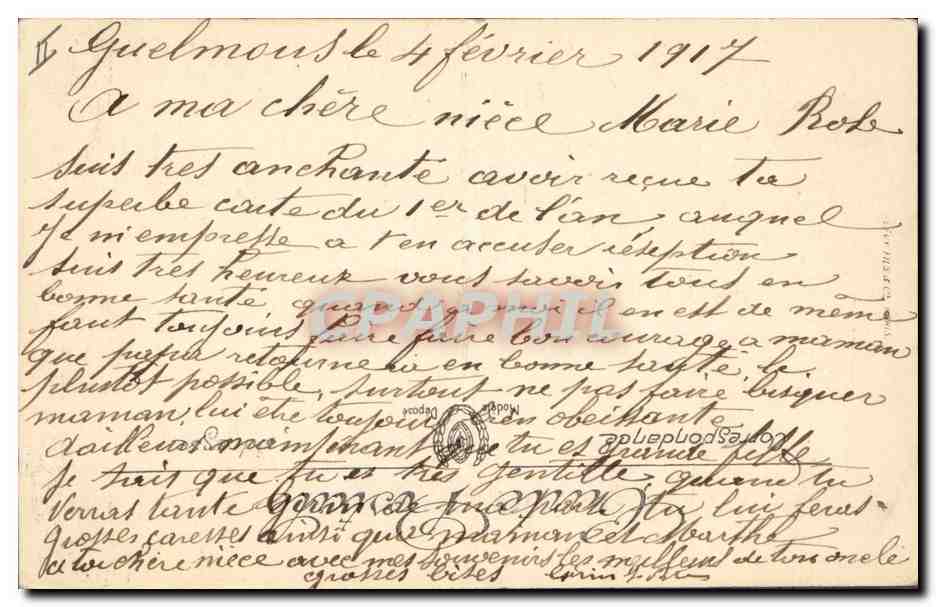 Guelmous le 4 février 1917
A ma chère nièce Marie Rose
suis tres anchanté avoir reçue ta
superbe carte du 1er de l'an auquel
Je m'empresse a t'en accuser réseption
suis tres heureux vous savoir tous en
bonne santé quand a moi il en est de même
faut toujours faire bon courage a maman
que papa retourne en bonne santé le
plustot possible, surtout ne pas faire bisquer
maman, lui être toujours bien obeissante
dailleurs maintenant que tu es grande fille
Je sais que tu es très gentille, quand tu
verras tante de ma part tu lui feras
grosses caresses ainsi que maman et Marthe
a toi chère nièce avec mes souvenirs les meilleurs de ton oncle
grosses bises
Modèle Déposé
Correspondance
CPAPHIL